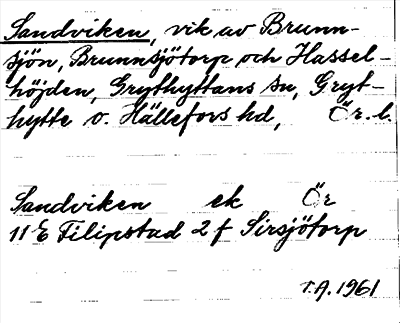 Sandviken, vik av Brunn-
sjön, Brunnsjötorp och Hassel-
höjden, Grythyttans sn, Gryt-
hytte o. Hällefors hd, Ör. l.
Sandviken ek Ör
11 E Filipstad 2 f Sirsjötorp
T.A. 1961